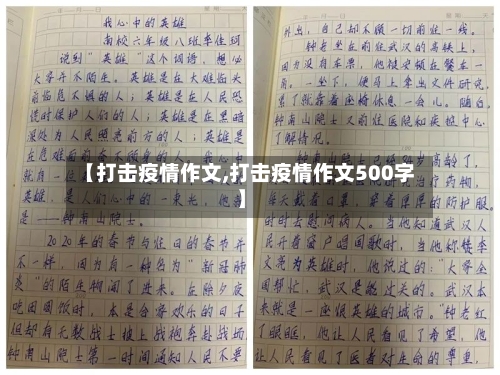 我心中的英雄
南校六年级八班李佳
说到“英雄”这个词语，想必
大家并不陌生。英雄是在大难临头
前临危不惧的人；英雄是在人民危
难时保护人们的人；英雄是在黑暗
深处为人民照亮前方的人；英雄是
在危难面前
就是一位
英雄，是人们心中的一束光，他
是——钟南山院士。
2020年的春节与往日的春节并
不一样，因为有一种名为“新冠肺
炎”的陌生物闯了进来。在除夕夜
吃团圆饭时，本是合家欢乐的日子
但却有无数战士披上战袍奔赴战场
钟南山院士第一时间通知人民不要
外出，自己却不顾一切前往一线。
钟老坐在前往武汉的高铁上，
因为没有车票，他被安顿在餐车一
角。一坐下，便马上拿出文件研究，
累了就靠着座椅休息一会儿。随后，
钟南山院士又前往医院和疾控中心
了解情况。
钟南山院士已经84岁高龄了，
治疗药物，
每天戴着口罩，穿着厚厚的防护服。
时时去慰问病人。当他知道武汉人
民开着窗户唱国歌时，当他称赞李
文亮为英雄时，他说过的：“大家全
国帮忙，武汉是能过关的。武汉本
来就是一座很英雄的城市。”钟老红
了眼眶，他让人民看见了希望，他
让人民看见了医者对生命的尊重，
【打击疫情作文,打击疫情作文500字
】